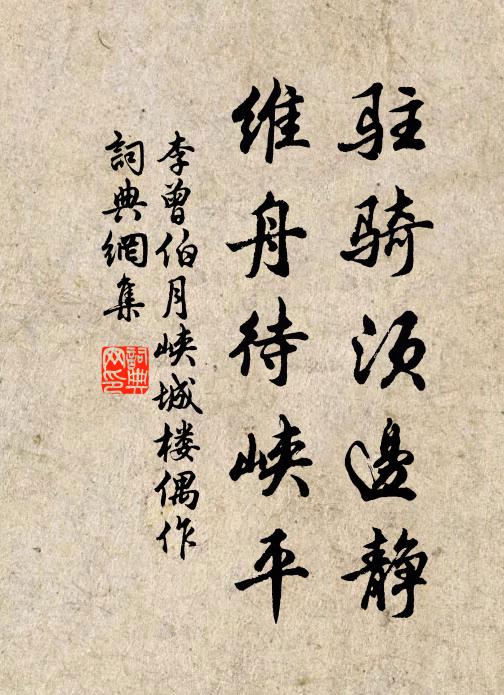 驻骑须邊静
维舟待峡平
李曾伯月峡城楼偶作
詞典網集
詞典网印